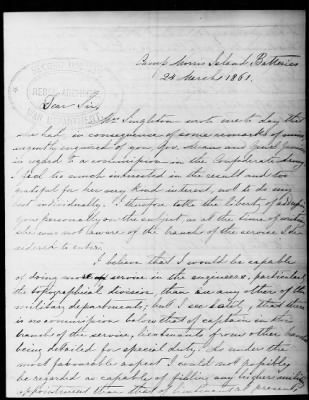 Camp Morris Island Batteries
24 March 1861.
Dear Sir,
Mrs Singleton wrote me to day that
she had, in consequence of some remarks of mine
urgently enquired of you, Gov. Means and Genl
in regard to a commission in the Confederate Army.
I feel too much interested in the result and too
grateful for her very kind interest, not to do my
best individually. I therefore take the liberty of
you personally on the subject, as at the time of
she was not aware of the branch of the service I de-
sired to enter.
I believe that I would be capable
of doing most service in the engineers, particularly
the topographical division, than in any other of the
military departments; but I see that there
is no commission below that of captain in this
branch of the service, lieutenants from other
being detailed for special duty. As under the
most favourable aspect I could not
be regarded as capable of filling any higher
appointment than that of lieutenant at present